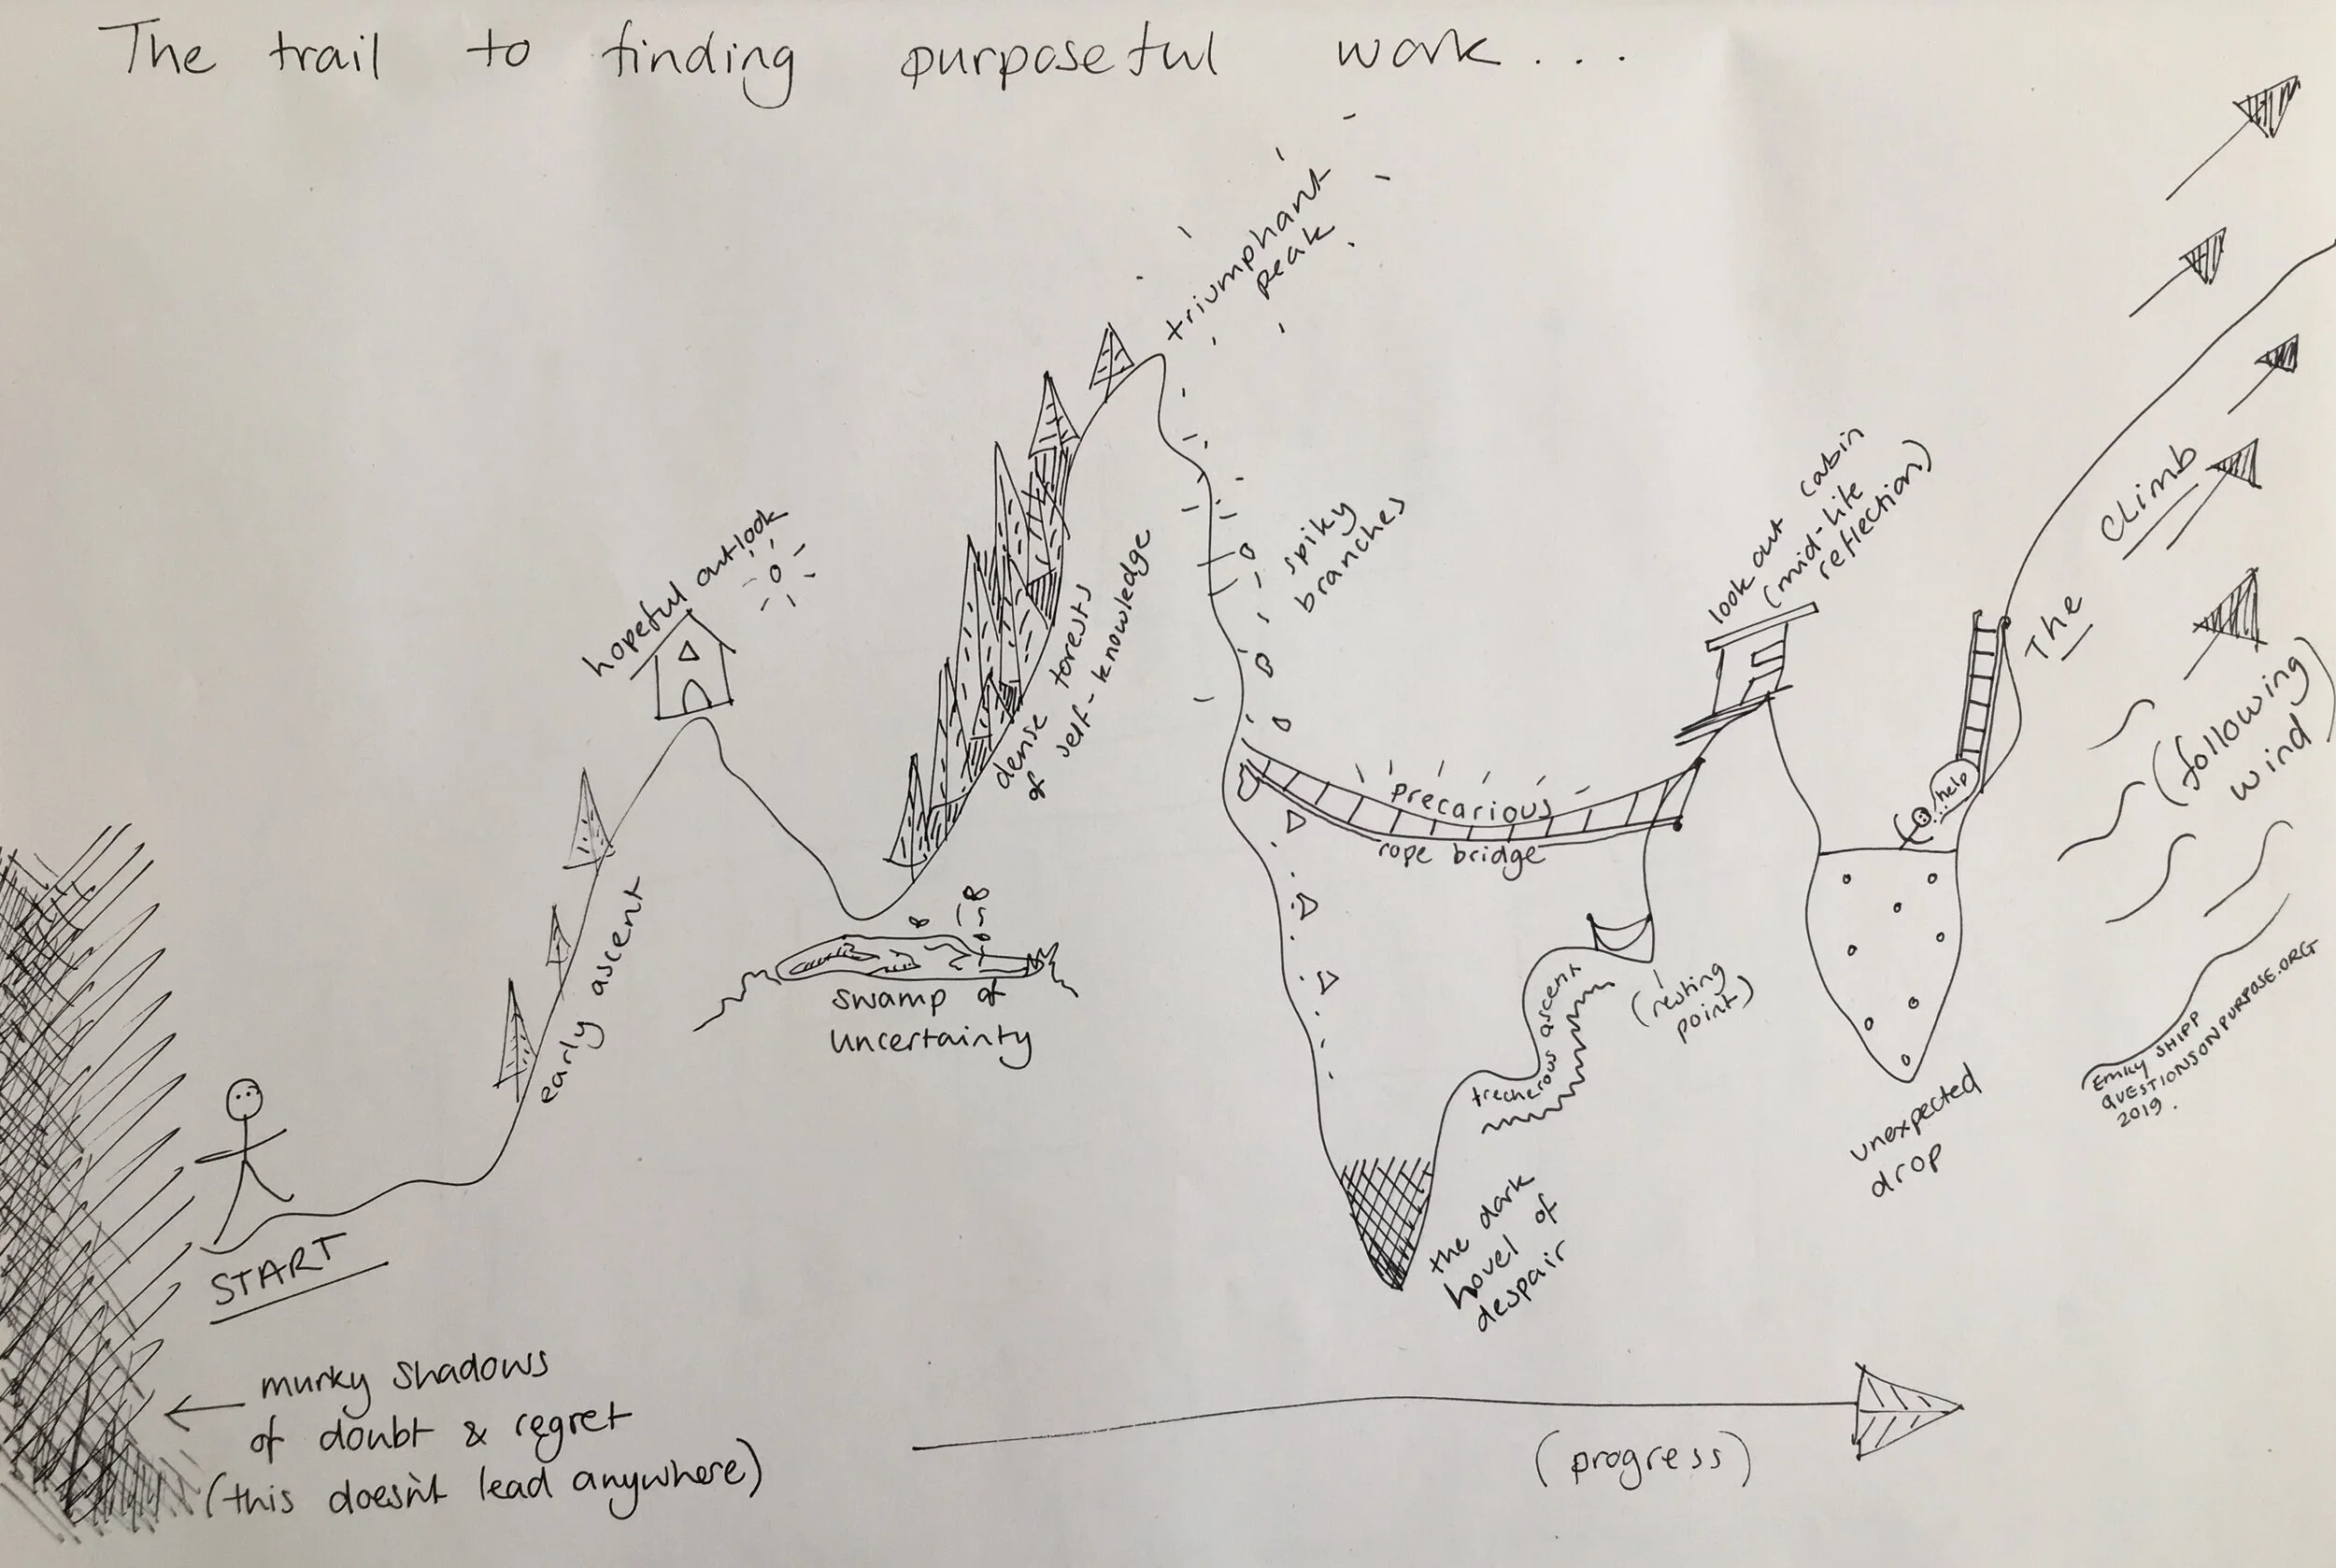 The trail to finding purposeful work...
triumphant
peak
hopeful outlook
dense forests
of self-knowledge
spiky
branches
look out cabin
(mid-life
reflection)
The Climb
(following
wind)
early ascent
swamp of
uncertainty
precarious
rope bridge
help
trecherous ascent
(resting
point)
the dark
hovel of
despair
unexpected
drop
START
murky shadows
of doubt & regret
(this doesn't lead anywhere)
(progress)
EMILY SHIPP
QUESTIONSONPURPOSE.ORG
2019.